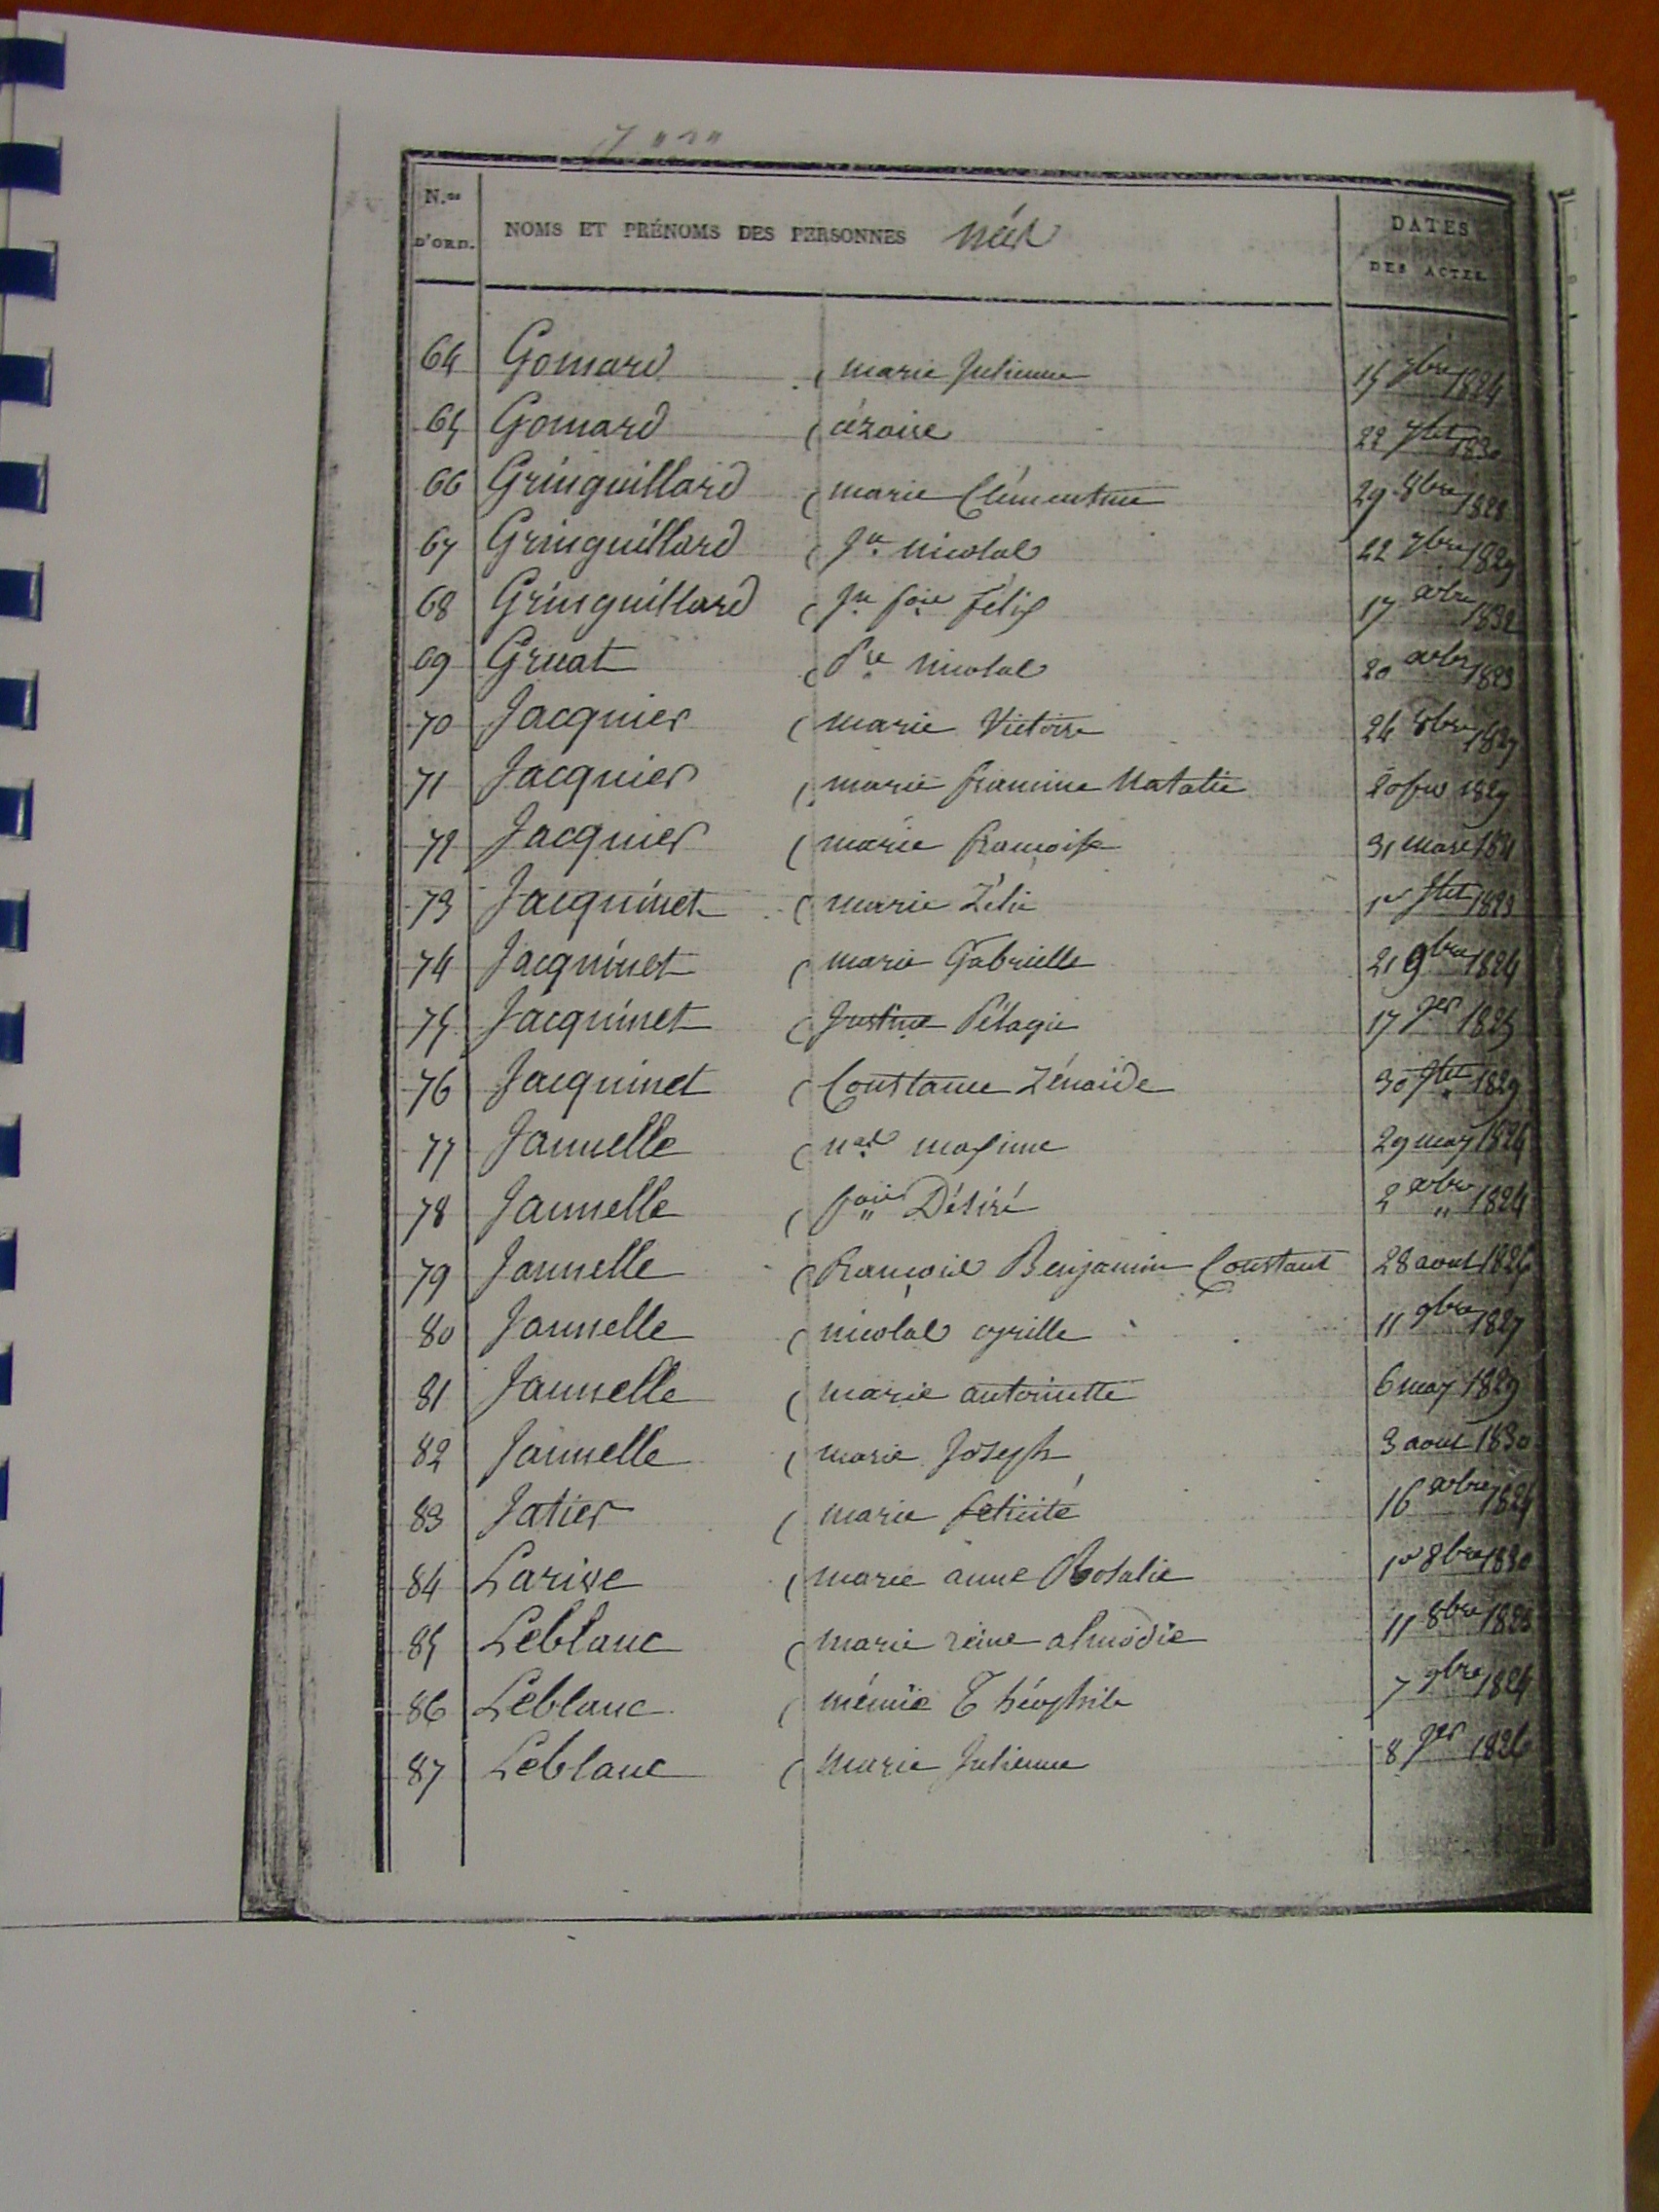 N.os D'ORD. NOMS ET PRÉNOMS DES PERSONNES nées DATES DES ACTES
64 Gomard ( marie Julienne 15 7bre 1824
65 Gomard ( cézaire 22 Jlet 1830
66 Gringuillard ( marie Clémentine 29 8bre 1828
67 Gringuillard ( Jn nicolas 22 7bre 1829
68 Gringuillard ( Jn fois Félix 17 xbre 1832
69 Gruat ( Pre nicolas 20 xbre 1823
70 Jacquier ( marie Victoire 24 8bre 1827
71 Jacquier ( marie framine Natalie 20 fer 1829
72 Jacquier ( marie françoise 31 mars 1831
73 Jacquinet ( marie Zélie 1er Jlet 1823
74 Jacquinet ( marie Gabrielle 21 9bre 1824
75 Jacquinet ( Justine Pélagie 17 Jer 1825
76 Jacquinet ( Constance Zénaïde 30 Jlet 1829
77 Jannelle ( nas maxime 29 may 1824
78 Jannelle ( fois Désiré 2 xbre 1824
79 Jannelle ( françois Benjamin Constant 28 aout 1826
80 Jannelle ( nicolas cyrille 11 9bre 1827
81 Jannelle ( marie antoinette 6 may 1829
82 Jannelle ( marie Joseph 3 aout 1830
83 Jatier ( marie felicité 16 xbre 1824
84 Larive ( marie anne Rosalie 1er 8bre 1830
85 Leblanc ( marie reine almodie 11 8bre 1823
86 Leblanc ( mémie Théophile 7 9bre 1824
87 Leblanc ( marie Julienne 8 Jer 1826